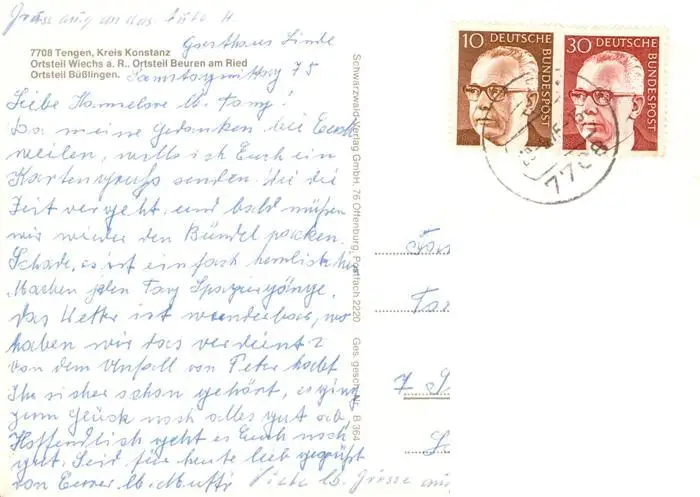 Grüsse auch an das liebe H
Gasthaus Linde
7708 Tengen, Kreis Konstanz
Ortsteil Wiechs a. R. Ortsteil Beuren am Ried
Ortsteil Büßlingen.
Samstagmittag 75
Liebe Hannelore lb. Fany!
Da meine Gedanken bei Euch
weilen, will ich Euch ein
Kartengruß senden. Die
Zeit vergeht und bald müßen
wir wieder den Bündel packen.
Schade, es ist einfach herrlich hier
Machen jeden Tag Spaziergänge.
Das Wetter ist wunderbar, wo
haben wir das verdient?
Von dem Unfall von Peter habt
Ihr sicher schon gehört, es ging
zum Glück noch alles gut ab.
Hoffendlich geht es Euch noch
gut. Seid für heute lieb gegrüßt
von Eurer lb. Mutti
Viele lb. Grüsse auch
Schwarzwald-Verlag GmbH, 76 Offenburg, Postfach 2220 Ges. gesch. Nr. B 364
10 DEUTSCHE BUNDESPOST
30 DEUTSCHE BUNDESPOST
7708
Fa
7